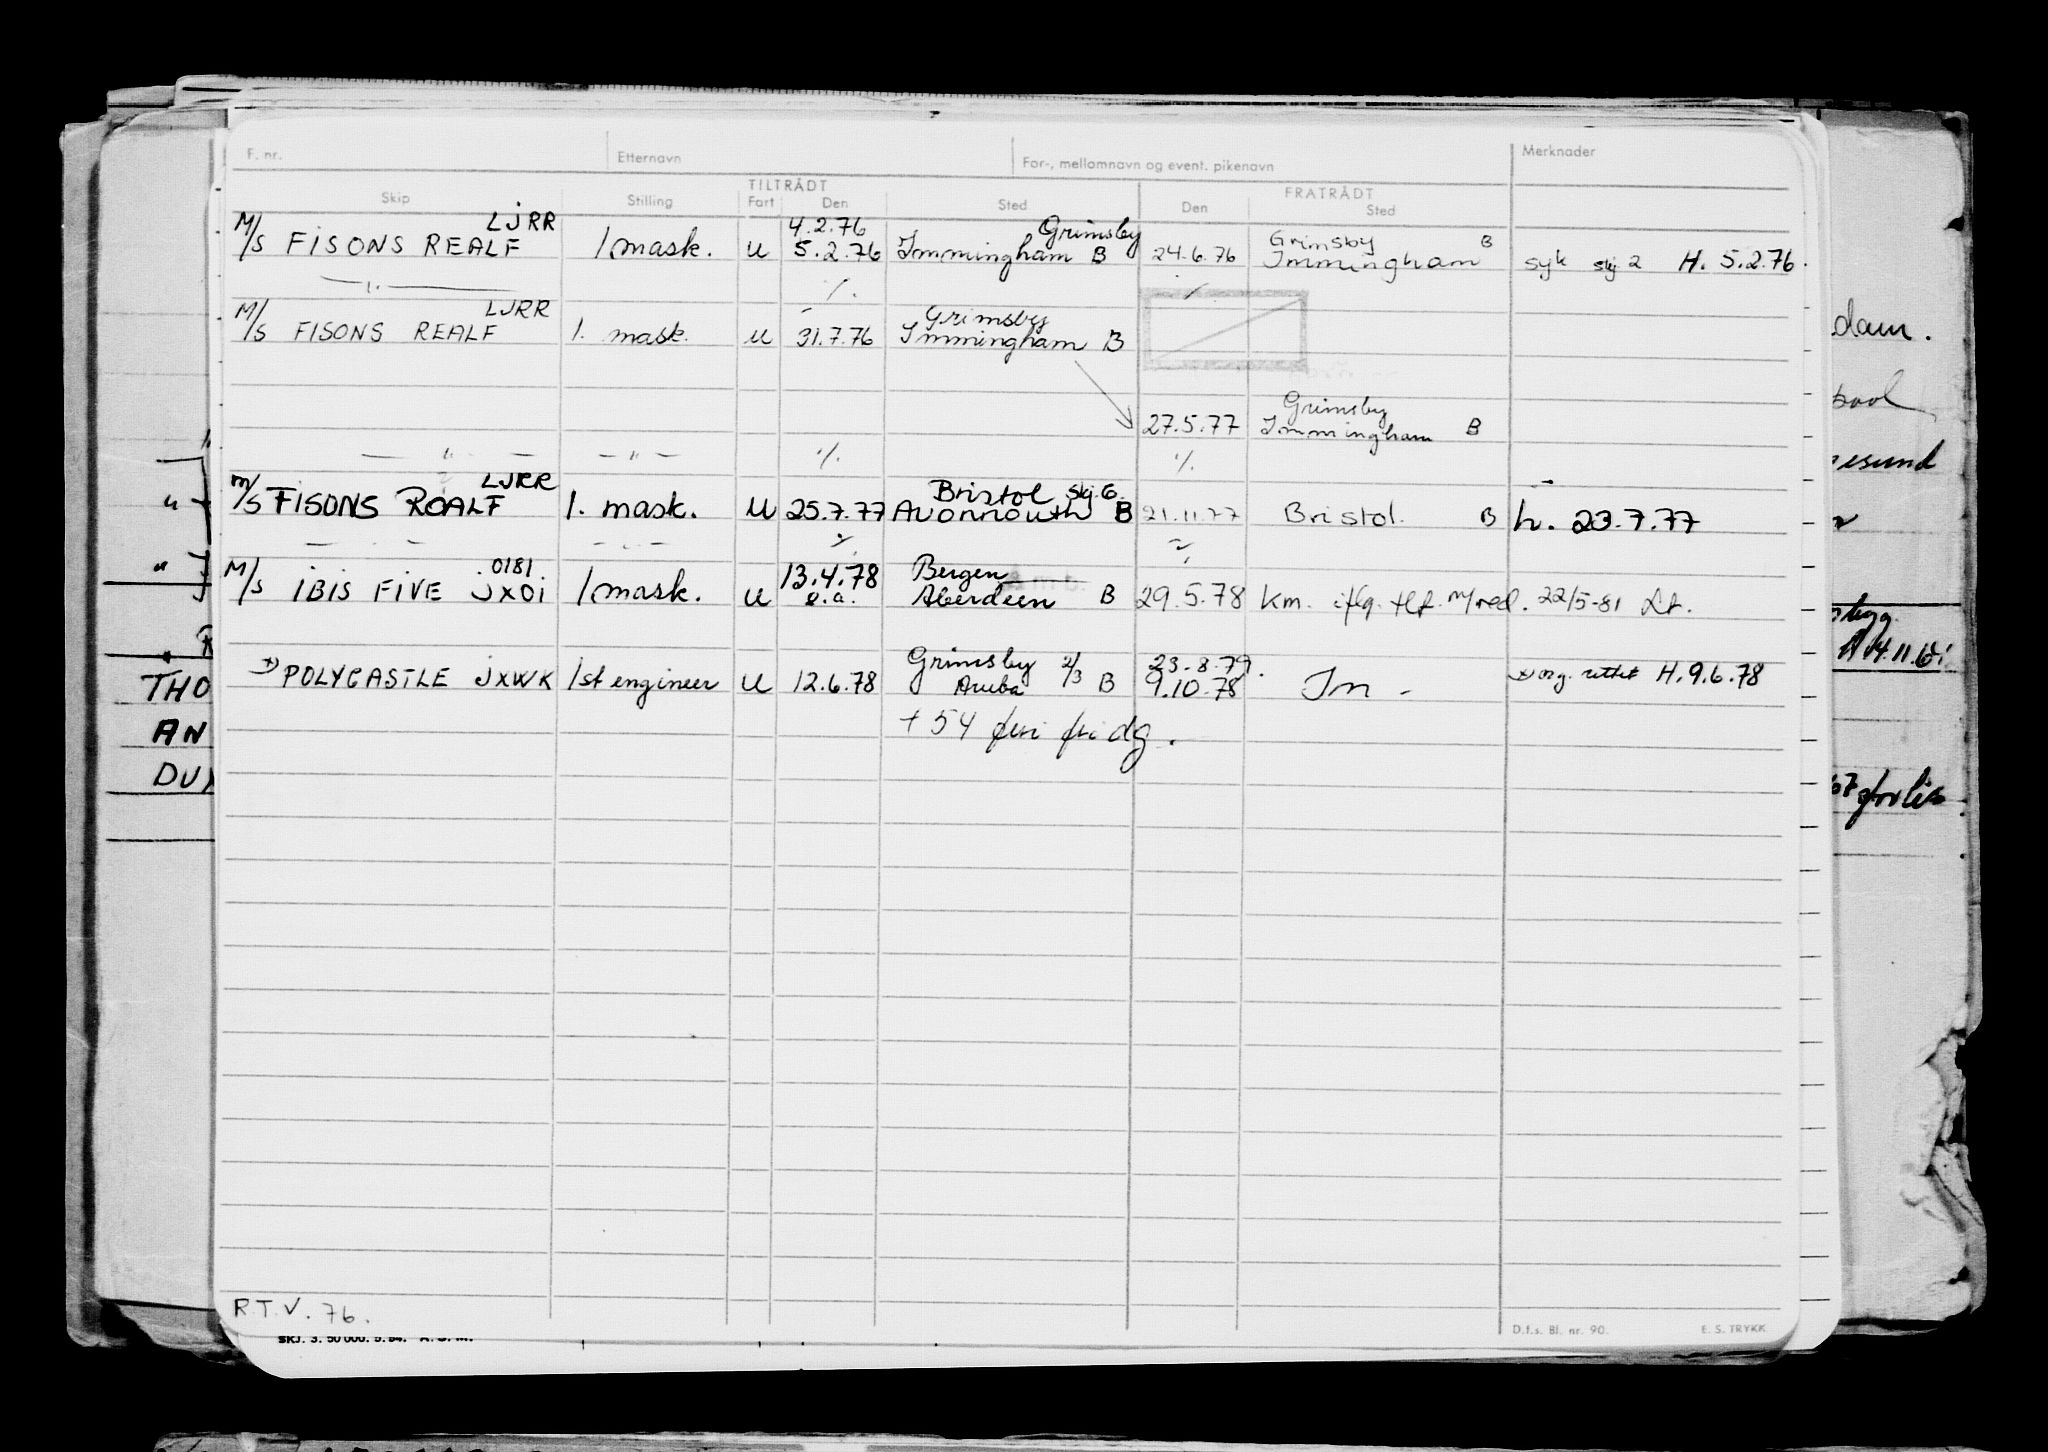 F. nr. Etternavn For-, mellomnavn og event. pikenavn Merknader
TILTRÅDT FRATRÅDT
Skip Stilling Fart Den Sted Den Sted
LJRR 4.2.76 Grimsby Grimsby B
M/S FISONS REALF 1 mask. U 5.2.76 Immingham B 24.6.76 Immingham syk skj 2 H. 5.2.76.
— " — ·/. ·/.
LJRR Grimsby
M/S FISONS REALF 1. mask. U 31.7.76 Immingham B
Grimsby
27.5.77 Immingham B
— " — — " — ·/. ·/.
LJRR Bristol skj. 6.
M/S FISONS ROALF 1. mask. U 25.7.77 Avonmouth B 21.11.77 Bristol. B h. 23.7.77
0181 13.4.78 Bergen
M/S IBIS FIVE JXOI 1 mask. U e.a. Aberdeen B 29.5.78 Km. iflg. tlf. m/red. 22/5-81
Grimsby 2/3 23.8.79.
x) POLYCASTLE JXWK 1st engineer U 12.6.78 Aruba B 9.10.78 x) org. rettet H. 9.6.78
+ 54 fri dg.
R.T.V. 76.
SKJ. 3. 50 000. 5. 54. A. S. M.
D.f.s. Bl. nr. 90. E. S. TRYKK
dam.
pool
esund
THO
AN
DU
forlis